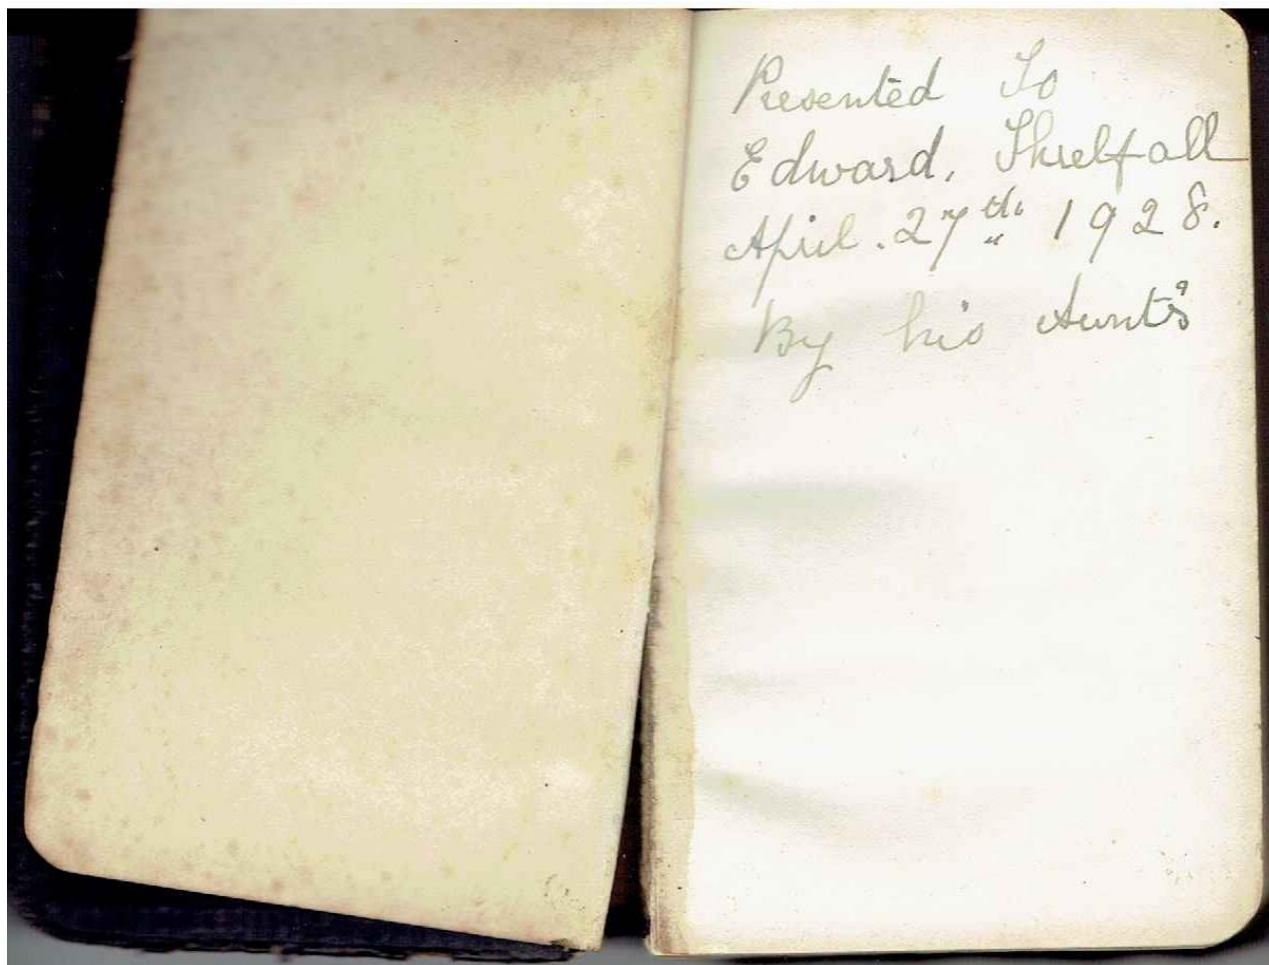 Presented To
Edward. Threlfall
April. 27th 1928.
By his Aunt's